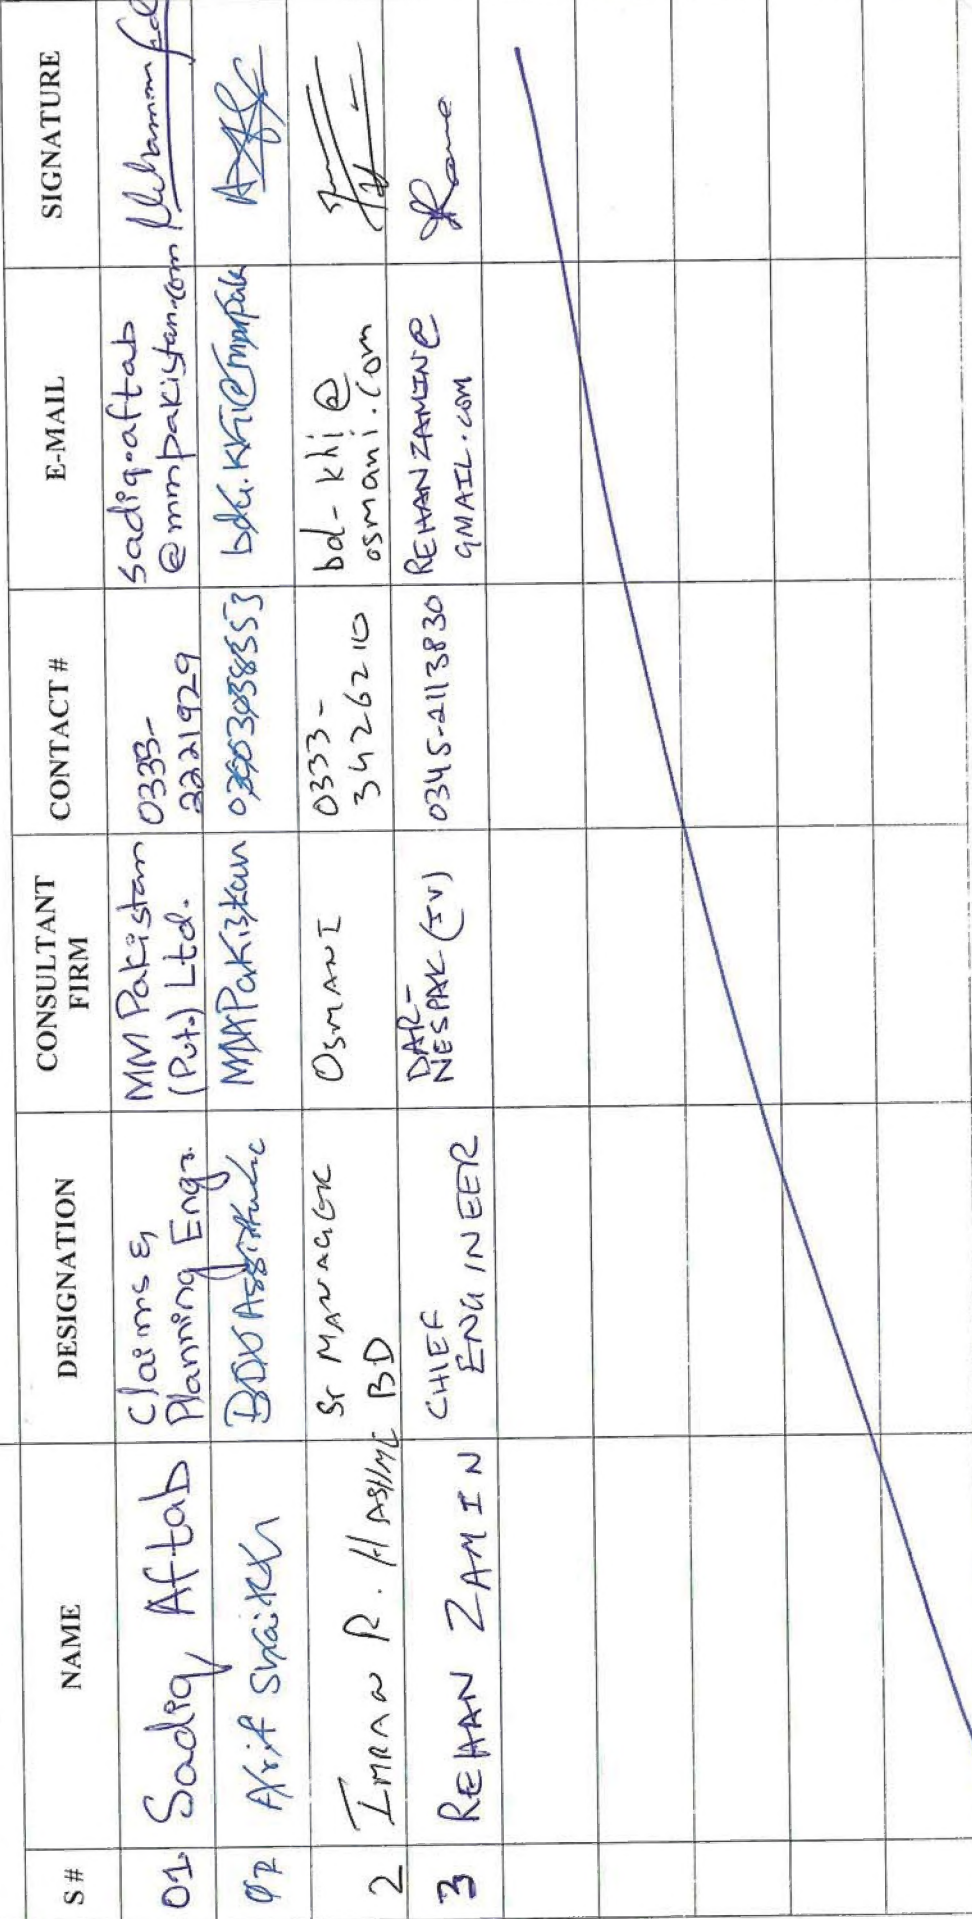 S # NAME DESIGNATION CONSULTANT FIRM CONTACT # E-MAIL SIGNATURE
01 Sadiq Aftab Claims & Planning Engr. MM Pakistan (Pvt.) Ltd. 0333-2221929 sadiq.aftab@mmpakistan.com
02 Arif Shaikh MM Pakistan
2 IMRAN R. HASHMI Sr MANAGER BD OSMANI 0333-3426210 bd-khi@osmani.com
3 REHAN ZAMIN CHIEF ENGINEER DAR-NESPAK (JV) 0345-2113830 REHANZAMIN@GMAIL.COM